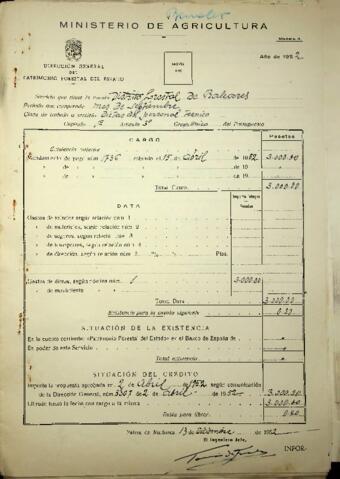 MINISTERIO DE AGRICULTURA
Modelo
Año de 1952
DIRECCIÓN GENERAL
DEL
PATRIMONIO FORESTAL DEL ESTADO
MOVIL
Servicio que rinde la cuenta Distrito forestal de Baleares
Periodo que comprende mes de septiembre
Clase de trabajo o servicio Dietas del personal Técnico
Capítulo 1º Artículo 3º Grupo del Presupuesto
CARGO
Pesetas
Existencia anterior
Mandamiento de pago núm. 1736 cobrado el 15 de Abril de 1952 3.000.00
de 19
de 19
TOTAL CARGO 3.000.00
DATA
Gastos de jornales según relación núm. 1
de materiales, según relación núm. 2
de seguros, según relación núm. 3
de transportes, según relación núm. 4
de dirección, según relación núm. Ptas.
Gastos de dietas, según relación núm. 1 3.000.00
de movimiento
TOTAL DATA 3.000.00
Existencia para la cuenta siguiente 0.00
SITUACIÓN DE LA EXISTENCIA
En la cuenta corriente «Patrimonio Forestal del Estado» en el Banco de España de
En poder de este Servicio
Total existencia
SITUACIÓN DEL CRÉDITO
Importa la propuesta aprobada en 2 de Abril de 1952 según comunicación
de la Dirección General, núm. de 2 de Abril de 1952 3.000.00
Librado hasta la fecha con cargo a la misma 3.000.00
Resta por librar 0.00
Palma de Mallorca 13 de 1952
El Ingeniero Jefe,
INFOR-